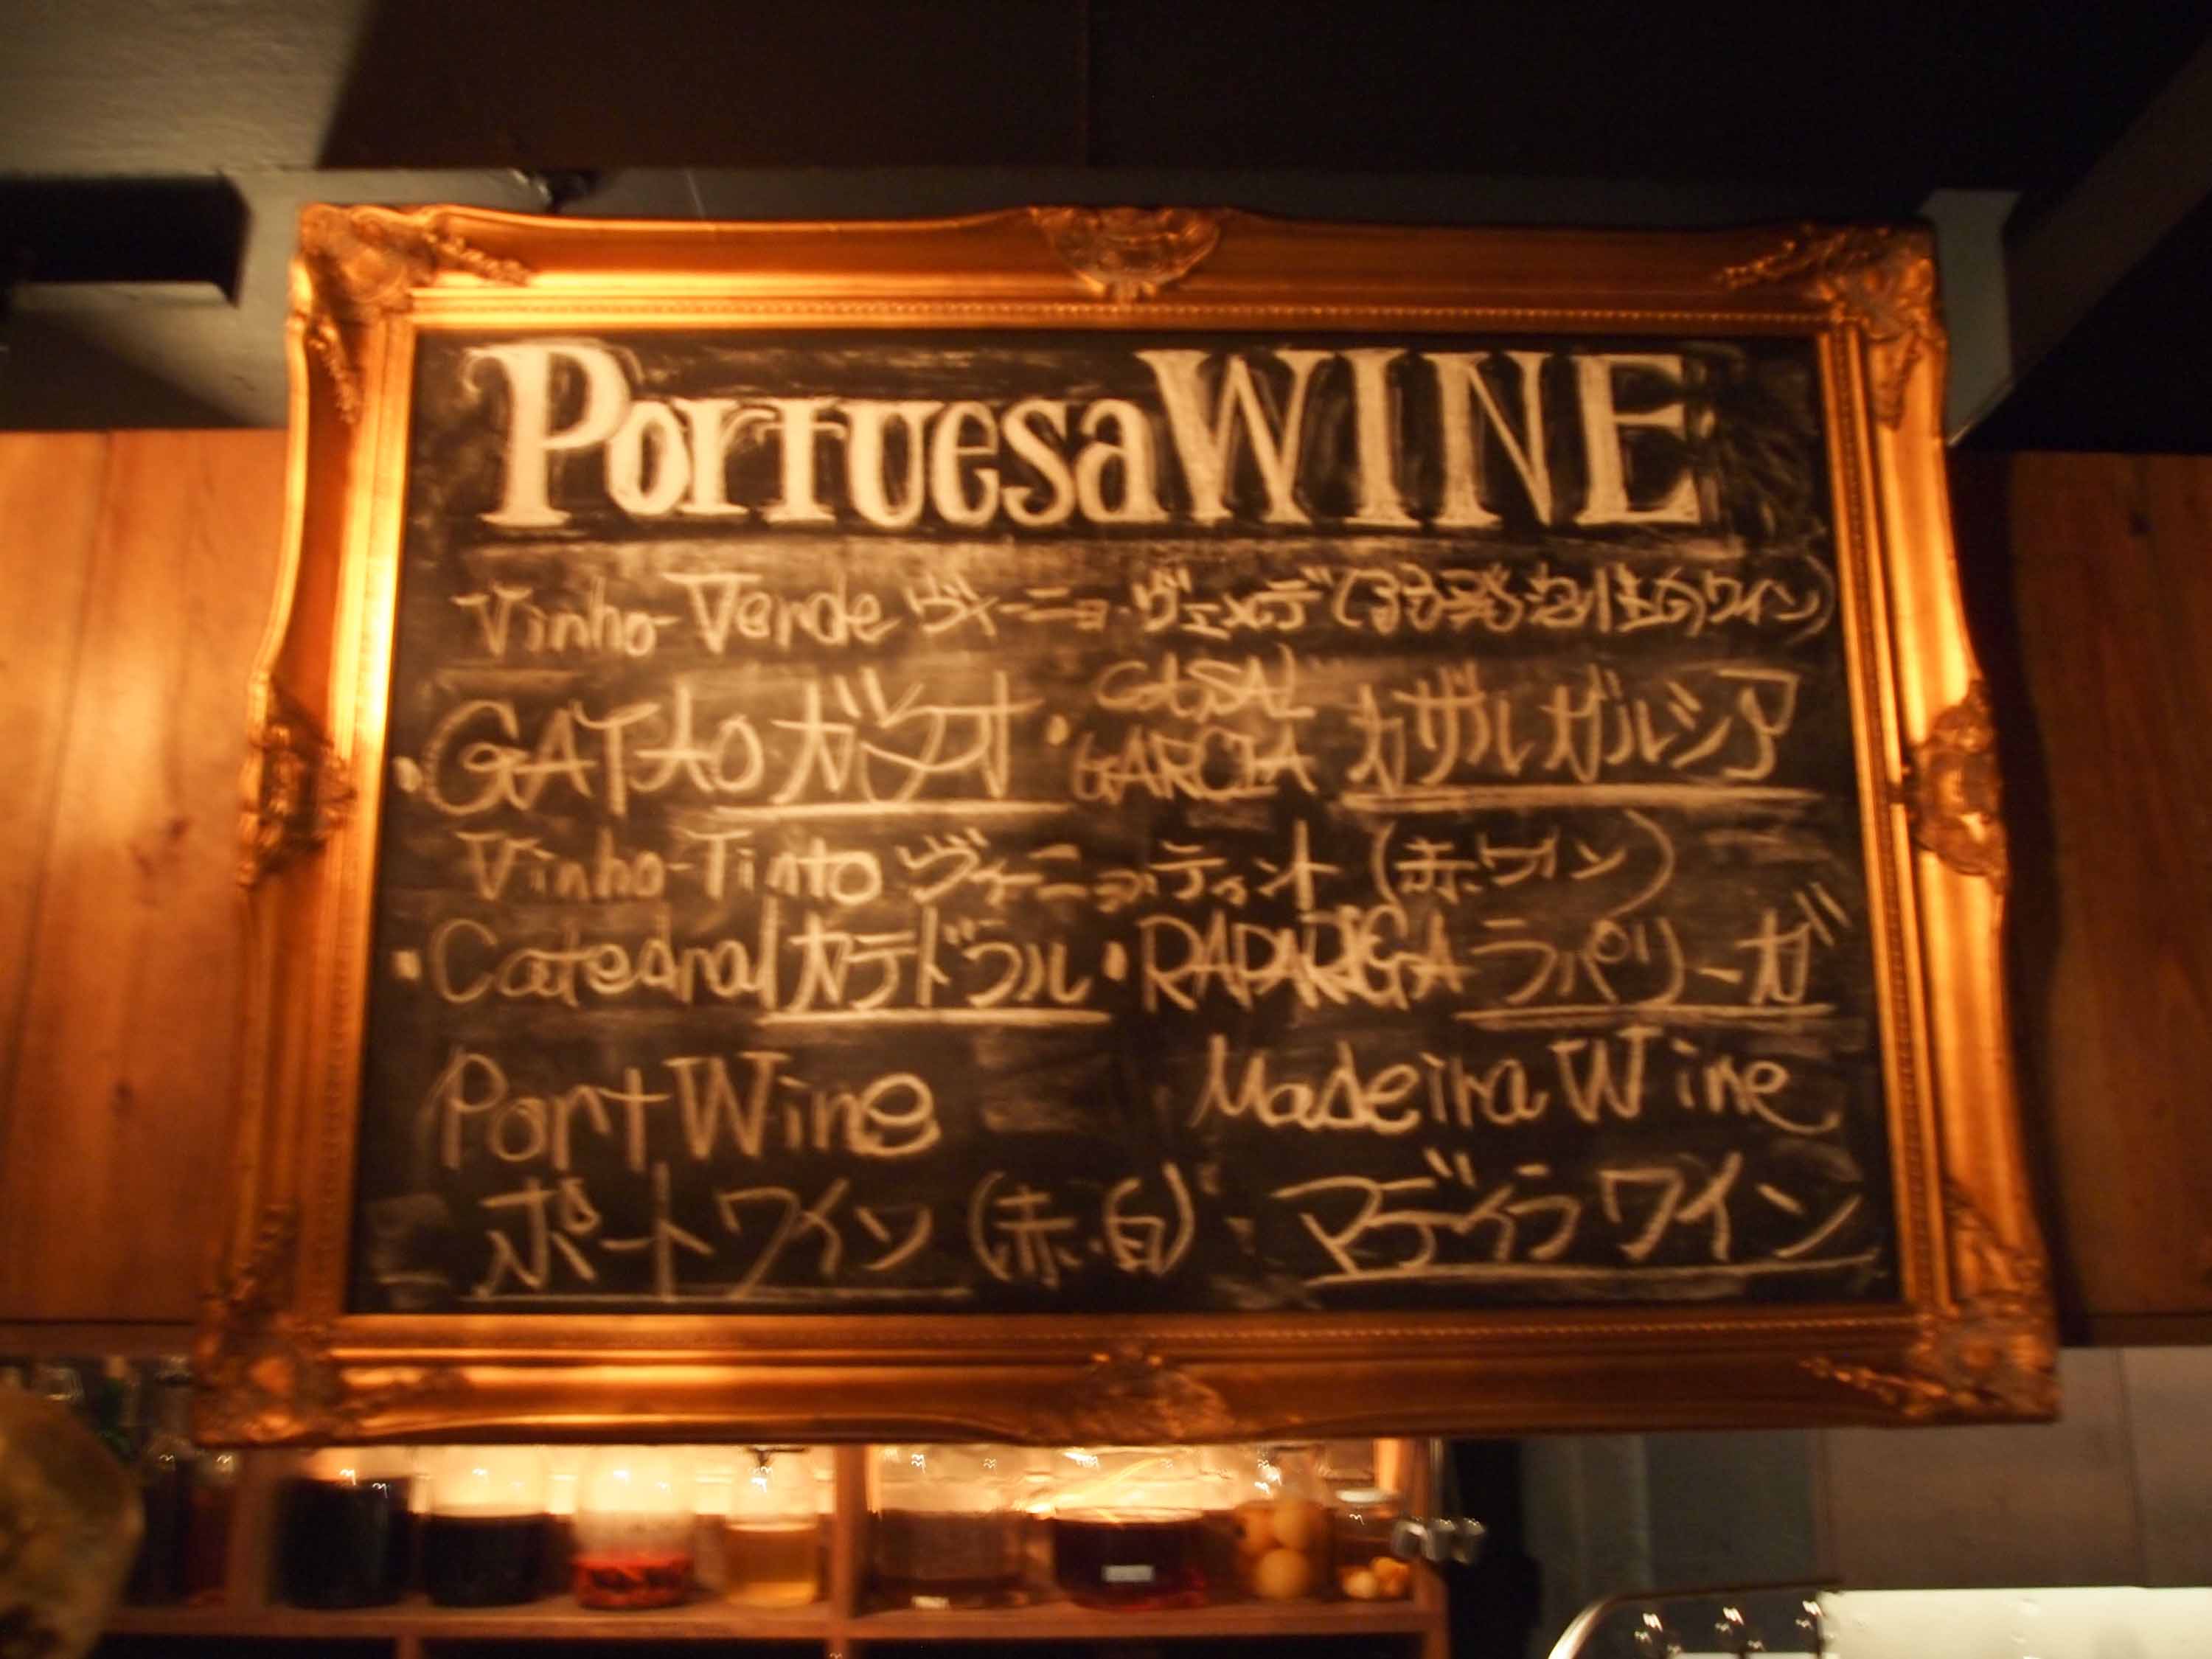 Portuesa WINE
Vinho-Verde ヴィーニョ・ヴェルデ (弱発泡性のワイン)
・GATAO ガタオ ・CASAL GARCIA カザルガルシア
Vinho-Tinto ヴィーニョ・ティント (赤ワイン)
・Catedral カテドラル ・RAPARIGA ラパリーガ
Port Wine Madeira Wine
ポートワイン (赤・白) ・マディラワイン